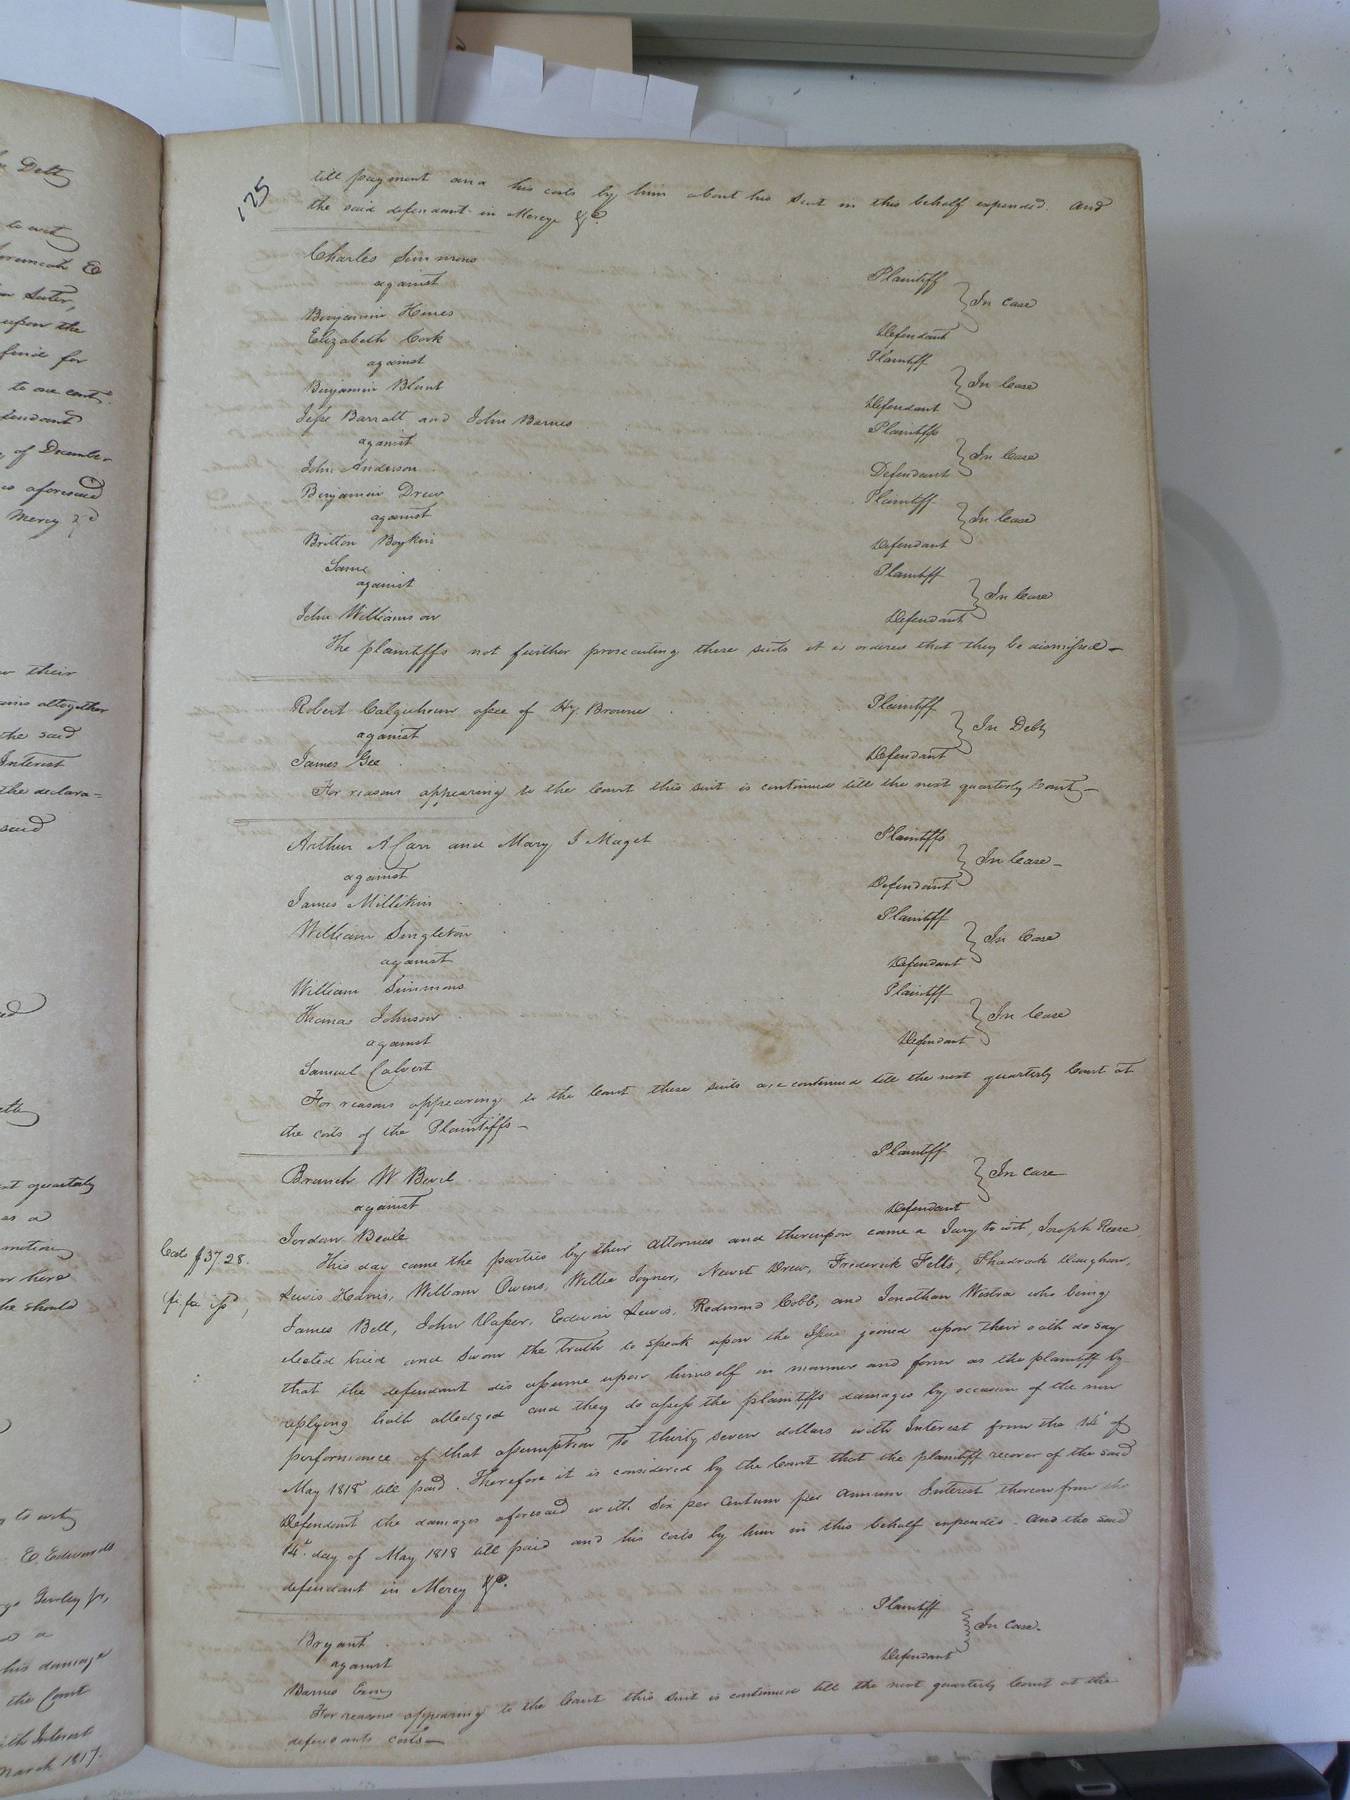 125
till payment and his costs by him about his Suit in this behalf expended. And
the said defendant in Mercy &c.
Charles Simmons Plaintiff
against In case
Benjamin Hines Defendant
Elizabeth Cork Plaintiff
against In Case
Benjamin Blunt Defendant
Jesse Barratt and John Barnes Plaintiffs
against In Case
John Anderson Defendant
Benjamin Drew Plaintiff
against In Case
Britton Boykin Defendant
Same Plaintiff
against In Case
John Williamson Defendant
The plaintiffs not further prosecuting these suits it is ordered that they be dismissed –
Robert Colquhoun assee of Hy. Browne Plaintiff
against In Debt
James Gee Defendant
For reasons appearing to the Court this suit is continued till the next quarterly Court –
Arthur A Carr and Mary I Maget Plaintiffs
against In Case –
James Millikin Defendant
William Singleton Plaintiff
against In Case
William Simmons Defendant
Thomas Johnson Plaintiff
against In Case
Samuel Calvert Defendant
For reasons appearing to the Court these suits are continued till the next quarterly Court at
the costs of the Plaintiffs –
Branch W Plaintiff
against In case
Jordan Beale Defendant
This day came the parties by their Attornies and thereupon came a Jury to wit, Joseph
Lewis Harris, William Owens, Willie Joyner, Newit Drew, Frederick Felts, Shadrach
James Bell, John Vaser, Edwin Lewis, Redmond Cobb, and Jonathan who being
elected tried and Sworn the truth to speak upon the Issue joined upon their oath do say
that the defendant did assume upon himself in manner and form as the plaintiff by
replying hath alledged and they do assess the plaintiffs damages by occasion of the non
performance of that assumption to thirty seven dollars with Interest from the 14th of
May 1818 till paid. Therefore it is considered by the Court that the plaintiff recover of the said
Defendant the damages aforesaid with Six per Centum per Annum Interest thereon from the
14th day of May 1818 till paid and his costs by him in this behalf expended. And the said
defendant in Mercy &c.
fi fa iss,
Bryant Plaintiff
against In case.
Barnes Defendant
For reasons appearing to the Court this suit is continued till the next quarterly Court at the
defendants costs –
Debt
to wit
upon the
to one cent.
of December
as aforesaid
Mercy &c
their
altogether
the said
Interest
the declara=
said
quarterly
as a
motion
here
he should
to wit
E. Edwards
his damage
the Court
with Interest
March 1817.